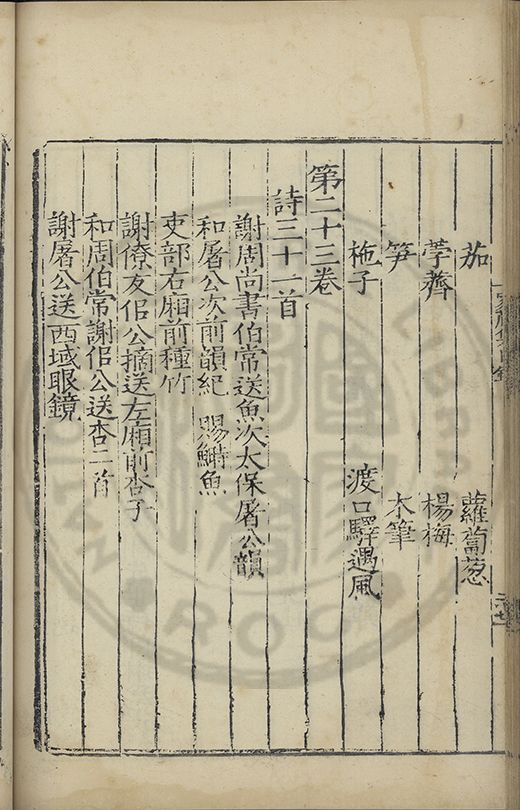 茄 蘿蔔葱
荸薺 楊梅
笋 木筆
梔子 渡口驛遇風
第二十三卷
詩三十一首
謝周尚書伯常送魚次太保屠公韻
和屠公次前韻紀 賜鰣魚
吏部右廂前種竹
謝僚友佀公摘送左廂前杏子
和周伯常謝佀公送杏二首
謝屠公送西域眼鏡